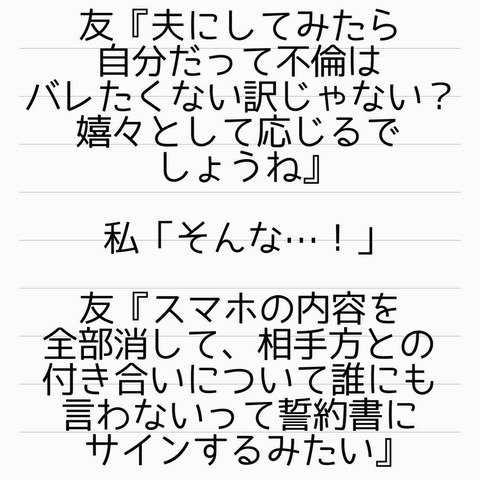 友『夫にしてみたら
自分だって不倫は
バレたくない訳じゃない？
嬉々として応じるで
しょうね』
私「そんな…！」
友『スマホの内容を
全部消して、相手方との
付き合いについて誰にも
言わないって誓約書に
サインするみたい』